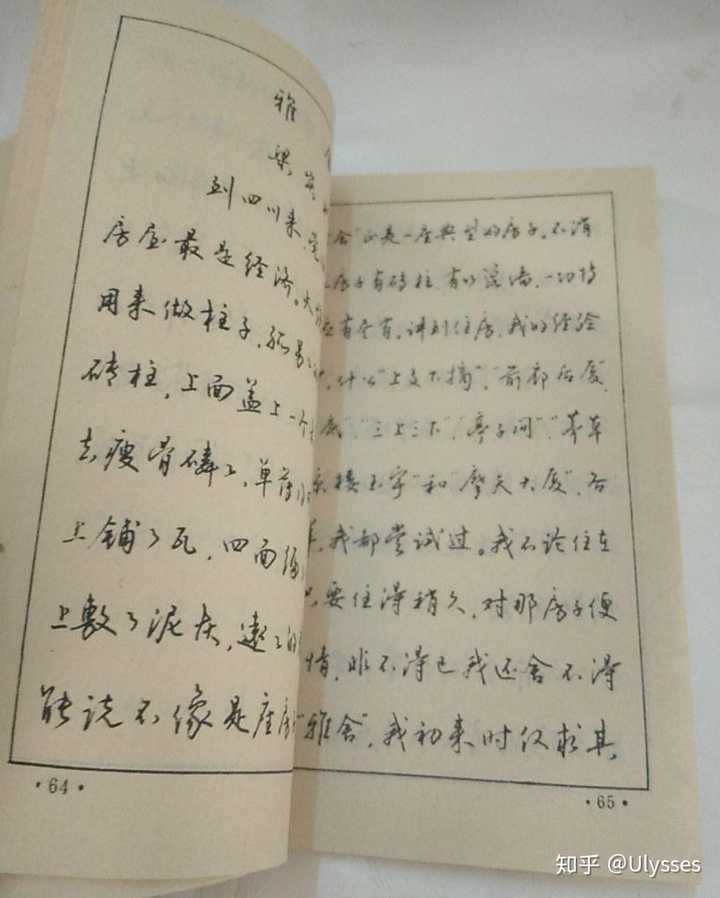 雅
梁实
到四川来,觉
房屋最是经济。火
用来做柱子,孤零
砖柱,上面盖上一个
去瘦骨磷々,单薄
上铺了瓦,四面编
上敷了泥灰,远々的
能说不像是座房
·64·
舍"正是一座典型的房子。不消
房子有砖柱,有竹篾墙,一切特
应有尽有。讲到住房,我的经验
,什么"上支下摘","前廊后厦",
底","三上三下","亭子间","茅草
琼楼玉宇"和"摩天大厦",各
,我都尝试过。我不论住在
只要住得稍久,对那房子便
情,非不得已我还舍不得
"雅舍",我初来时仅求其
·65·
知乎 @Ulysses